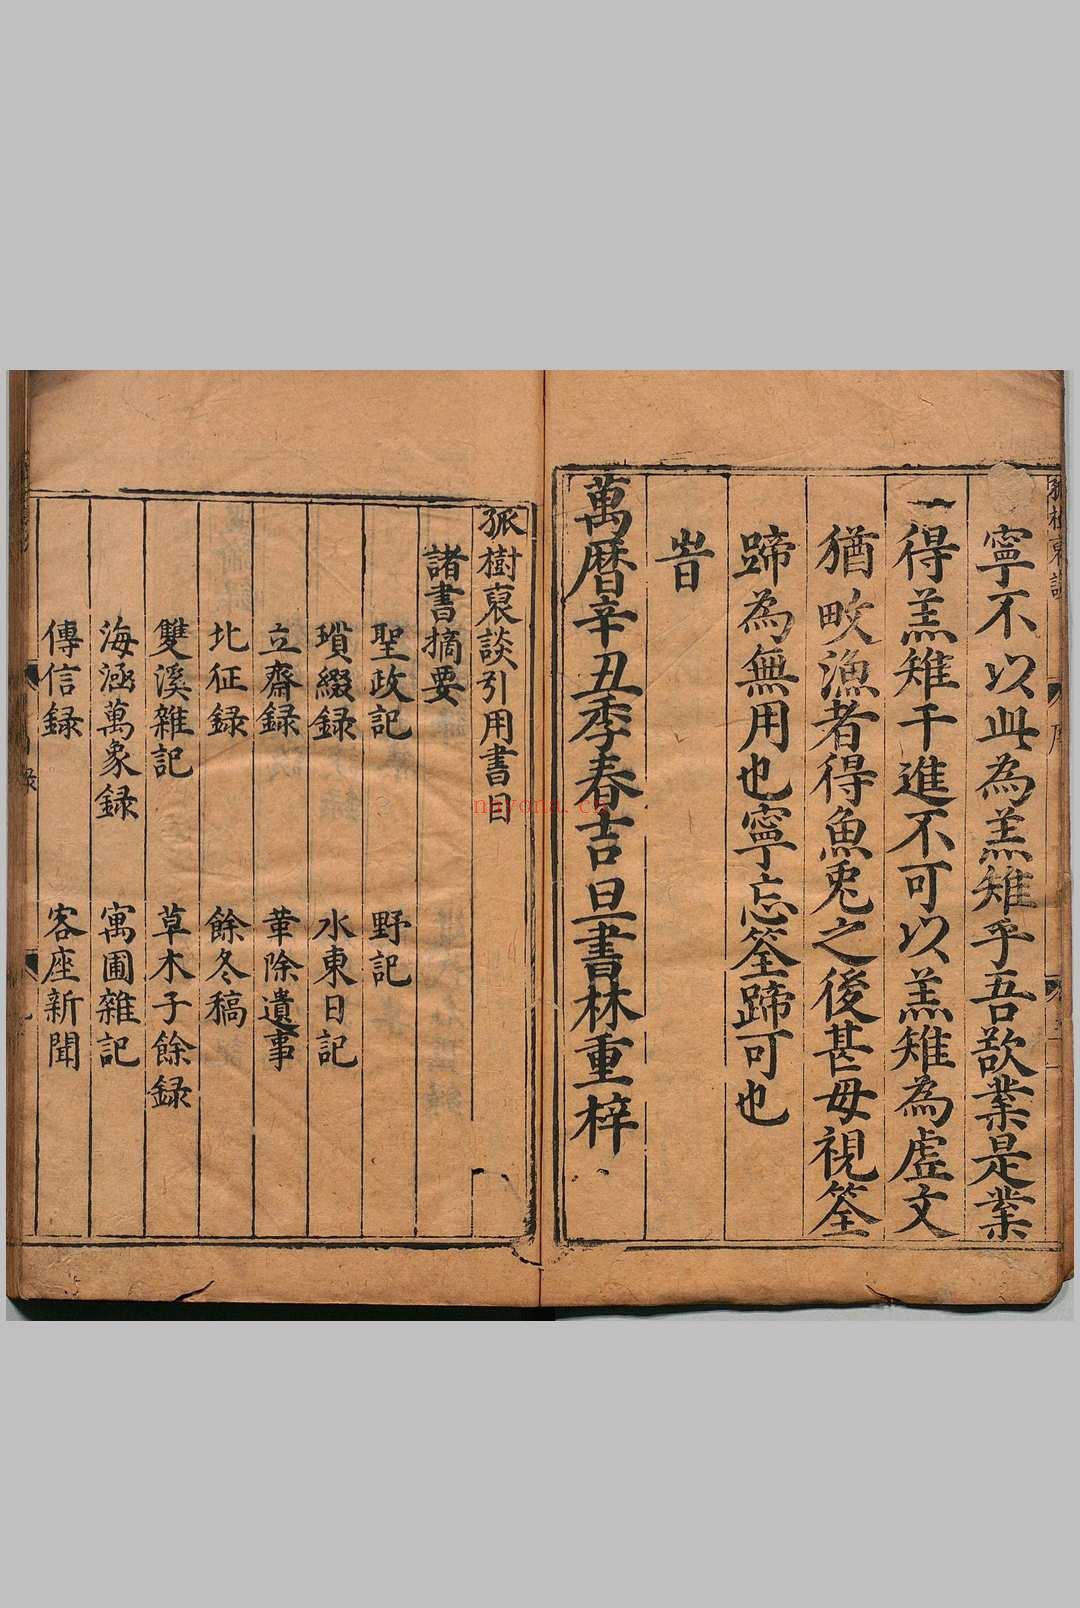 寧不以此為羔雉乎吾欲業是業
一得羔雉千進不可以羔雉為虛文
猶畋漁者得魚兎之後甚毋視筌
蹄為無用也寧忘筌蹄可也
旹
萬曆辛丑季春吉旦書林重梓
孤樹裒談引用書目
諸書摘要
聖政記 野記
瑣綴録 水東日記
立齋録 革除遺事
北征録 餘冬稿
雙溪雜記 草木子餘録
海涵萬象録 寓圃雜記
傳信録 客座新聞